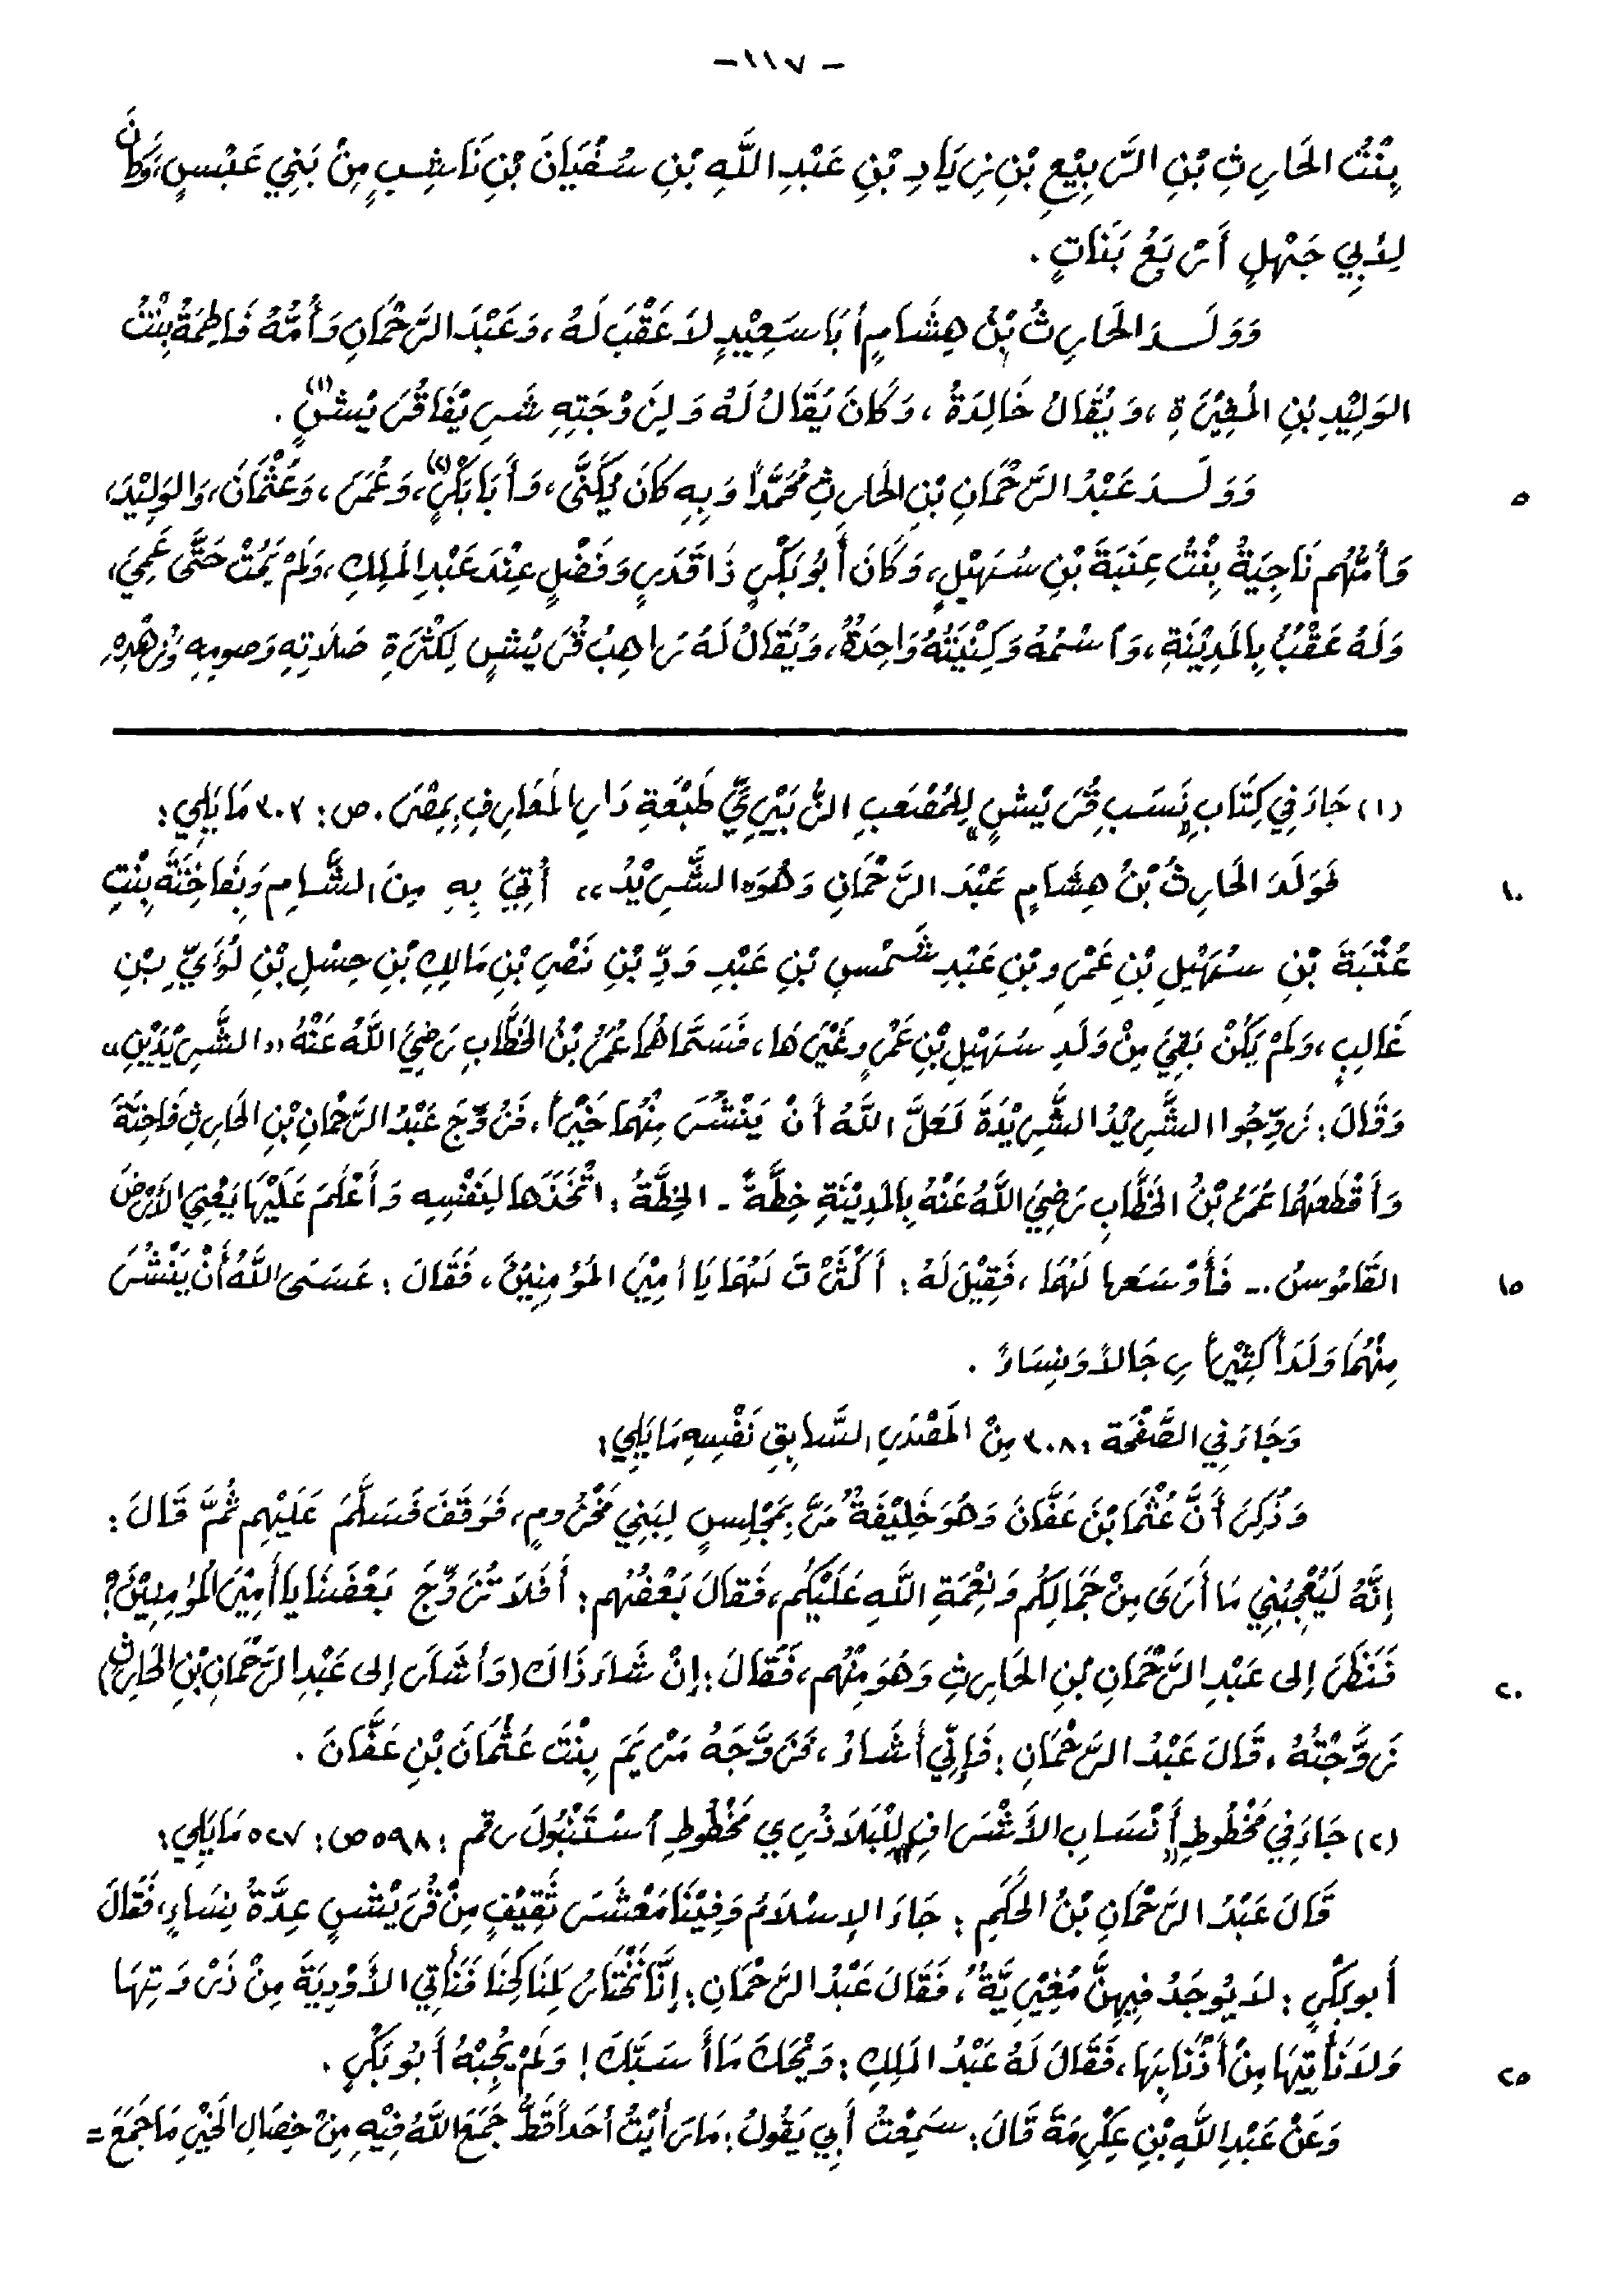 - ١١٧ -
بِنْتُ الحَارِثِ بْنِ الرَّبِيْعِ بْنِ زِيَادِ بْنِ عَبْدِ اللَّهِ بْنِ سُفْيَانَ بْنِ نَاشِبٍ مِنْ بَنِي عَبْسٍ، وَكَانَ
لِأَبِي جَهْلٍ أَرْبَعُ بَنَاتٍ .
وَوَلَدَ الحَارِثُ بْنُ هِشَامٍ أَبَا سَعِيْدٍ لاَ عَقْبَ لَهُ ، وَعَبْدَ الرَّحْمَانِ وَأُمُّهُ فَاطِمَةُ بِنْتُ
الوَلِيْدِ بْنِ المُغِيْرَةِ ، وَيُقَالُ خَالِدَةُ ، وَكَانَ يُقَالُ لَهُ وَلِزَوْجَتِهِ شَرِيْفَا قُرَيْشٍ (١) .
وَوَلَدَ عَبْدُ الرَّحْمَانِ بْنِ الحَارِثِ مُحَمَّدًا وَبِهِ كَانَ يُكَنَّى ، وَأَبَا بَكْرٍ (٢)، وَعُمَرَ ، وَعُثْمَانَ ، وَالوَلِيْدَ ،
٥
وَأُمُّهُم نَاجِيَةُ بِنْتُ عِنَبَةَ بْنِ سُهَيْلٍ ، وَكَانَ أَبُو بَكْرٍ ذَا قَدَرٍ وَفَضْلٍ عِنْدَ عَبْدِ المَلِكِ ، وَلَمْ يَمُتْ حَتَّى عَمِيَ ،
وَلَهُ عَقْبٌ بِالمَدِيْنَةِ ، وَاسْمُهُ وَكِنْيَتُهُ وَاحِدَةٌ ، وَيُقَالُ لَهُ رَاهِبُ قُرَيْشٍ لِكَثْرَةِ صَلاَتِهِ وَصَومِهِ وَزُهْدِهِ
(١) جَاءَ فِي كِتَابِ «نَسَبِ قُرَيْشٍ» لِلمُصْعَبِ الزُّبَيْرِيِّ طَبْعَةِ دَارِ المَعَارِفِ بِمِصْرَ . ص: ٣٠٣ مَا يَلِي :
فَوَلَدَ الحَارِثُ بْنُ هِشَامٍ عَبْدَ الرَّحْمَانِ وَهُوَ «الشَّرِيْدُ» أُتِيَ بِهِ مِنَ الشَّامِ وَبِفَاخِتَةَ بِنْتِ
١٠
عُتْبَةَ بْنِ سُهَيْلِ بْنِ عَمْرِو بْنِ عَبْدِ شَمْسِ بْنِ عَبْدِ وَدِّ بْنِ نَصْرِ بْنِ مَالِكِ بْنِ حِسْلِ بْنِ لُؤَيِّ بْنِ
غَالِبٍ ، وَلَمْ يَكُنْ بَقِيَ مِنْ وَلَدِ سُهَيْلِ بْنِ عَمْرٍو غَيْرَهَا ، فَسَمَّاهُمَا عُمَرُ بْنُ الخَطَّابِ رَضِيَ اللَّهُ عَنْهُ «الشَّرِيْدَيْنِ»
وَقَالَ : زَوِّجُوا الشَّرِيْدَ الشَّرِيْدَةَ لَعَلَّ اللَّهَ أَنْ يَنْشُرَ مِنْهُمَا خَيْراً ، فَزُوِّجَ عَبْدُ الرَّحْمَانِ بْنِ الحَارِثِ فَاخِتَةَ
وَأَقْطَعَهُمَا عُمَرُ بْنُ الخَطَّابِ رَضِيَ اللَّهُ عَنْهُ بِالمَدِيْنَةِ خِطَّةً - الخِطَّةُ : اتَّخَذَهَا لِنَفْسِهِ وَأَعْلَمَ عَلَيْهَا يَعْنِي الأَرْضَ
القَامُوسُ .- فَأَوْسَعَهَا لَهُمَا ، فَقِيْلَ لَهُ : أَكْثَرْتَ لَهُمَا يَا أَمِيْرَ المُؤْمِنِيْنَ ، فَقَالَ : عَسَى اللَّهُ أَنْ يَنْشُرَ
١٥
مِنْهُمَا وَلَدَاً كَثِيْراً رِجَالاً وَنِسَاءً .
وَجَاءَ فِي الصَّفْحَة : ٣٠٨ مِنَ المَصْدَرِ السَّابِقِ نَفْسِهِ مَا يَلِي :
وَذُكِرَ أَنَّ عُثْمَا بْنَ عَفَّانَ وَهُوَ خَلِيْفَةٌ مَرَّ بِمَجْلِسٍ لِبَنِي مَخْزُومٍ ، فَوَقَفَ فَسَلَّمَ عَلَيْهِم ثُمَّ قَالَ :
إِنَّهُ لَيُعْجِبُنِي مَا أَرَى مِنْ جَمَالِكُم وَنِعْمَةِ اللَّهِ عَلَيْكُم ، فَقَالَ بَعْضُهُم : أَفَلاَ تُزَوِّجَ بَعْضَنَا يَا أَمِيْرَ المُؤْمِنِيْنَ ؟
فَنَظَرَ إلى عَبْدِ الرَّحْمَانِ بْنِ الحَارِثِ وَهُوَ مِنْهُم ، فَقَالَ : إِنْ شَاءَ ذَاكَ (وَأَشَارَ إلى عَبْدِ الرَّحْمَانِ بْنِ الحَارِثِ)
٢٠
زَوَّجْتُهُ ، قَالَ عَبْدُ الرَّحْمَانِ : فَإِنِّي أَشَاءُ ، فَزَوَّجَهُ مَرْيَمَ بِنْتَ عُثْمَانَ بْنِ عَفَّانَ .
(٢) جَاءَ فِي مَخْطُوطِ «أَنْسَابِ الأَشْرَافِ» لِلْبَلاَذُرِي مَخْطُوطِ اسْتَنْبُولَ رقم : ٥٩٨ ص: ٥٢٧ مَا يَلِي :
قَالَ عَبْدُ الرَّحْمَانِ بْنُ الحَكَمِ : جَاءَ الإِسْلاَمُ وَفِيْنَا مَعْشَرَ ثَقِيْفٍ مِنْ قُرَيْشٍ عِدَّةُ نِسَاءٍ ، فَقَالَ
أَبو بَكْرٍ : لاَ يُوجَدُ فِيهِنَّ مُغِيْرِيَّةٌ ، فَقَالَ عَبْدُ الرَّحْمَانِ : إِنَّا نَخْتَارُ لِمَنَاكِحِنَا فَنَأْتِي الأَوْدِيَةَ مِنْ ذَرْوَتِهَا
وَلاَ نَأْتِيْهَا مِنْ أَذْنَابِهَا ، فَقَالَ لَهُ عَبْدُ المَلِكِ : وَيْحَكَ مَا أَسَبَّكَ ! وَلَمْ يُجِبْهُ أَبُو بَكْرٍ .
٢٥
وَعَنْ عَبْدِ اللَّهِ بْنِ عِكْرِمَةَ قَالَ : سَمِعْتُ أَبِي يَقُولُ : مَا رَأَيْتُ أَحَداً قَطُّ جَمَعَ اللَّهُ فِيْهِ مِنْ خِصَالِ الخَيْرِ مَا جَمَعَ =